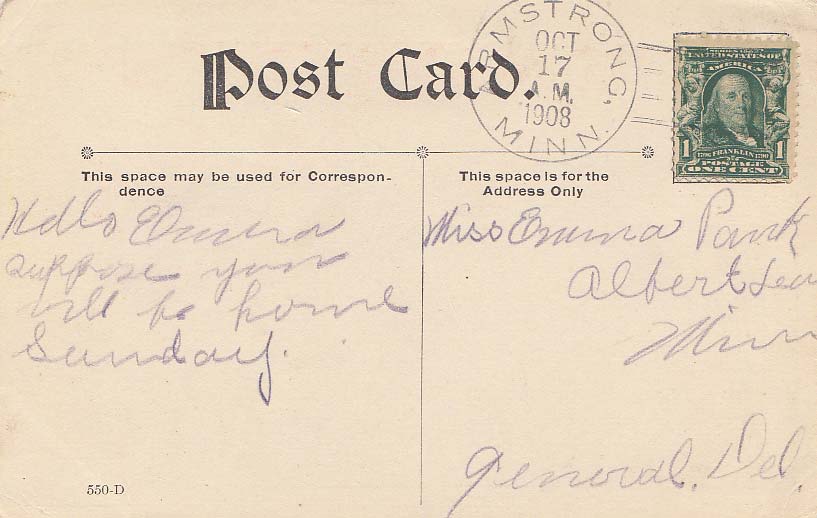 Post Card.
ARMSTRONG, MINN.
OCT
17
A.M.
1908
SERIES 1902
UNITED STATES OF
AMERICA
1 1
1706 FRANKLIN 1790
POSTAGE
ONE CENT
This space may be used for Correspon-
dence
Hello Emma
suppose you
will be home
Sunday.
550-D
This space is for the
Address Only
Miss Emma
Albert Lea
Minn
General. Del.